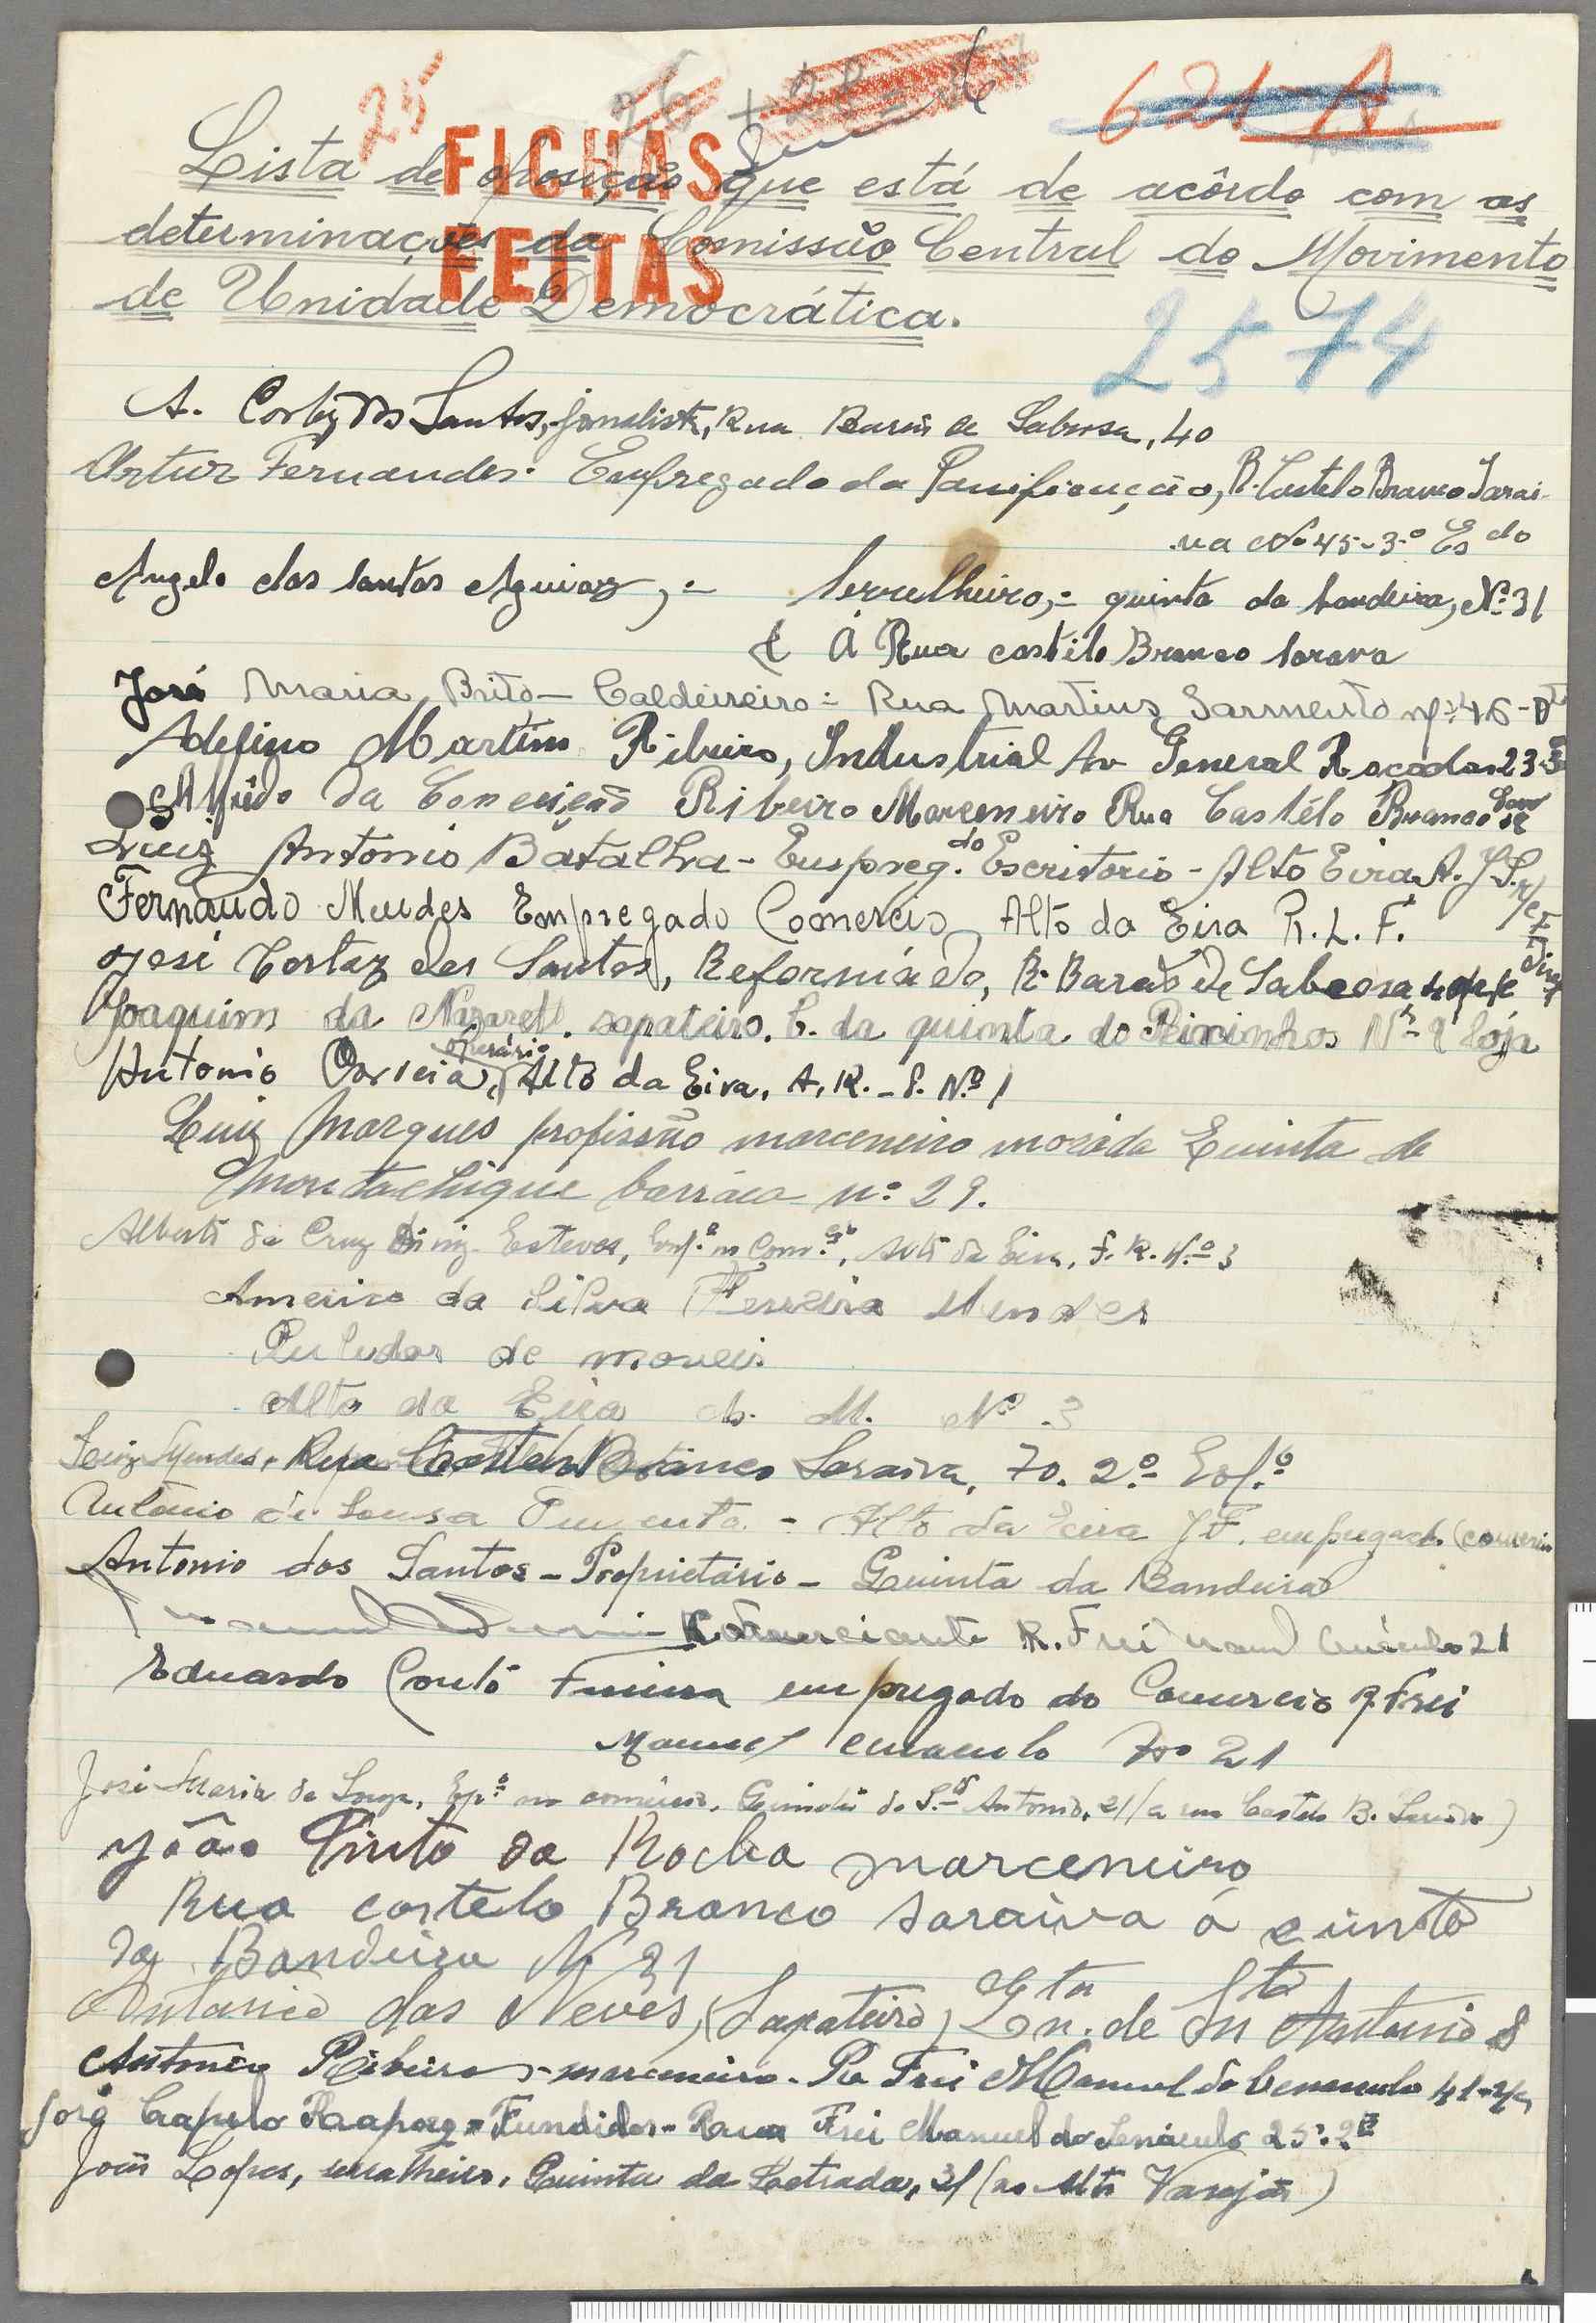 25
621-A
FICHAS
FEITAS
Lista de oposição que está de acôrdo com as
determinações da Comissão Central do Movimento
de Unidade Democrática.
2574
A. Cortez dos Santos, jornalista, Rua Barão de Sabrosa, 40
Artur Fernandes. Empregado da Panificação, R. Castelo Branco Sarai-
va Nº 45-3º Esdo
Angelo dos Santos Aguiar,= Serrelheiro,= quinta da bandeira, Nº 31
Á Rua castelo Branco Sarava
José Maria Brito - Caldeireiro = Rua Martins Sarmento nº 46-
Adefino Martins Ribeiro, Industrial Av General Roçadas 23-3
Alfrêdo da Conceição Ribeiro Marceneiro Rua Castélo Branco
Luiz Antonio Batalha - Empreg.do Escritorio - Alto Eira A. J.
Fernando Mendes Empregado Comercio Alto da Eira R. L. F.
José Cortez dos Santos, Reformádo, R. Barão de Sabrosa, 40
Joaquim da Nazaret. sapateiro. C. da quinta do Peixinhos Nº 2 loja
operário
Antonio Correia, Alto da Eira, A, R. - P. Nº 1
Luiz Marques profissão marceneiro morada Quinta de
Montachique barráca nº 29.
Alberto da Cruz Diniz Esteves, Empº no Comº, Alto da Eira, F. R. Nº 3
Americo da Silva Ferreira Mendes
Pulidor de moveis
Alto da Eira M. Nº 3
Luiz Mendes, Rua Castelo Branco Saraiva, 70. 2º Esqº
Antonio de Sousa Pimenta - Alto da Eira J F. empregado comercio
Antonio dos Santos - Proprietário - Quinta da Bandeira
Comerciante R. Frei Manuel Cenáculo 21
Eduardo Couto empregado do Comercio R. Frei
Manuel Cenaculo Nº 21
José Maria de Sousa, Epº no comércio, Quinta de Stº Antonio, 21 (a rua Castelo B. Saraiva)
João Pinto da Rocha marceneiro
Rua castelo Branco saraiva á quinta
da Bandeira Nº 31
Antonio das Neves, (Sapateiro) Qta de Stº Antonio 8
Antonio Ribeiro - marceneiro - Rª Frei Manuel do Cenaculo 41-
Jorg Crapulo - Fundidor - Rua Frei Manuel do Cenáculo 25-2º
João Lopes, serralheiro, Quinta da 31 (ao Alto Varejão)